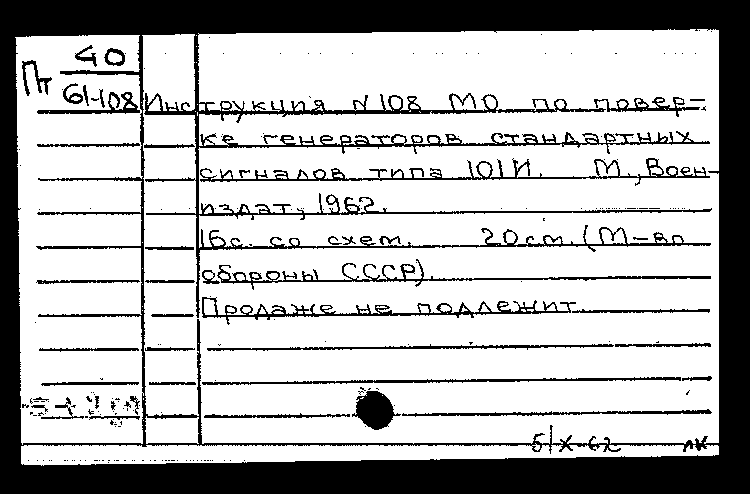 40
Пт 61-108 Инструкция №108 МО по повер-
ке генераторов стандартных
сигналов типа 101И. М., Воен-
издат, 1962.
16с. со схем. 20см. (М-во
обороны СССР).
Продаже не подлежит.
5/X-62 лк